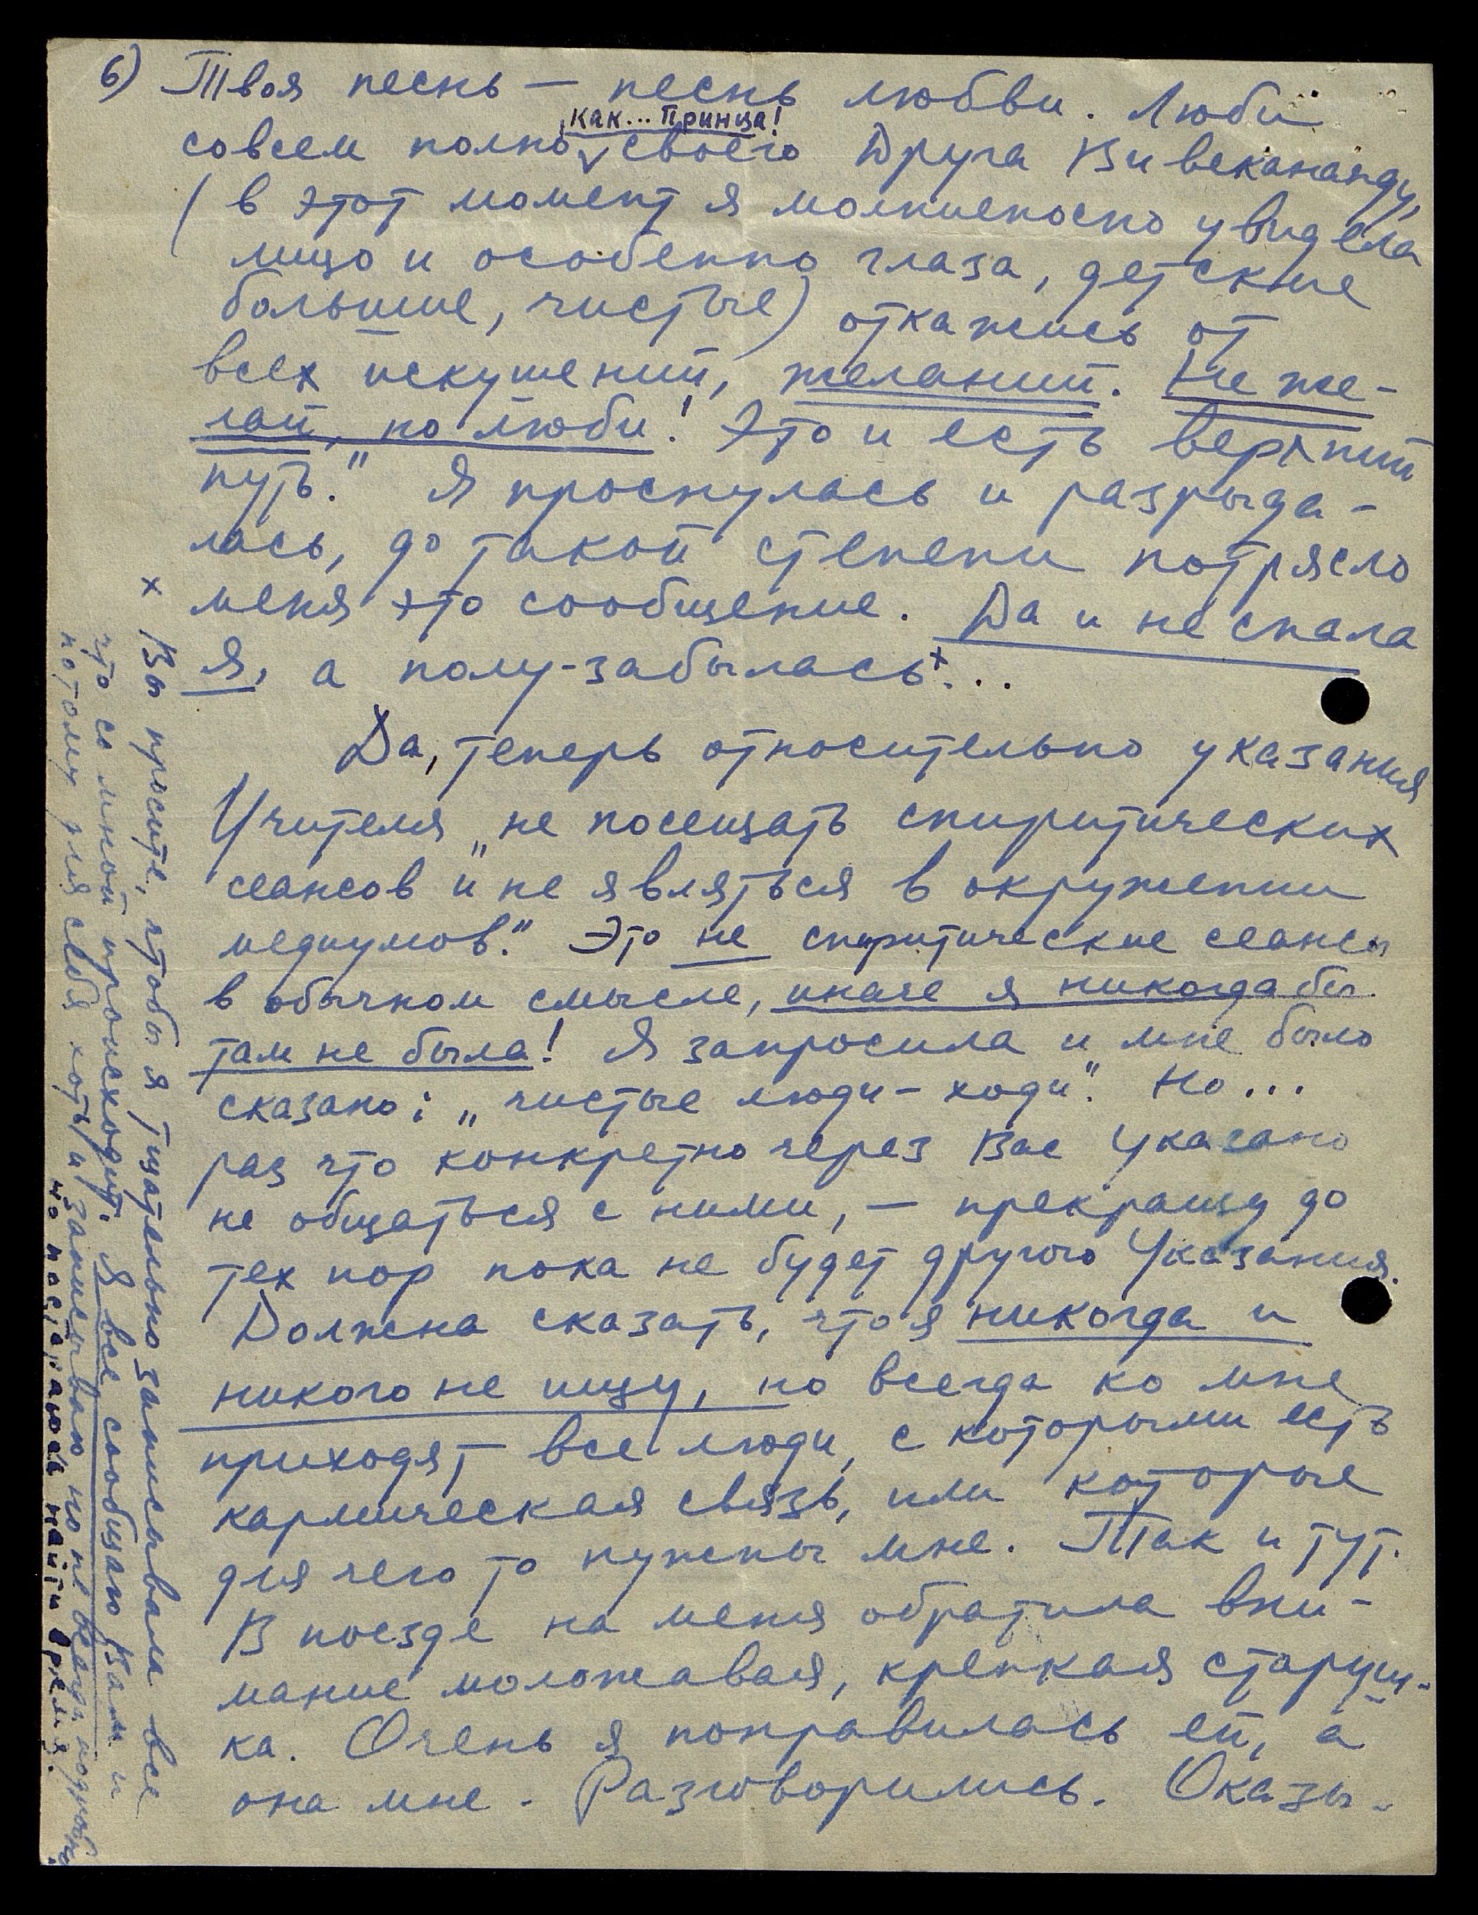 6) Твоя песнь — песнь любви. Люби
как... Принца!
совсем полно своего Друга Вивекананду,
(в этот момент я молниеносно увидела
лицо и особенно глаза, детские
большие, чистые) откажись от
всех искушений, желаний. Не же-
лай, но люби! Это и есть верхний
путь." Я проснулась и разрыда-
лась, до такой степени потрясло
меня это сообщение. Да и не спала
я, а полу-забылась+...
Да, теперь относительно указания
Учителя „не посещать спиритических
сеансов" и „не являться в окружении
медиумов." Это не спиритические сеансы
в обычном смысле, иначе я никогда бы
там не была! Я запросила и мне было
сказано: „чистые люди – ходи". Но...
раз что конкретно через Вас Указано
не общаться с ними, — прекращу до
тех пор пока не будет другого Указания.
Должна сказать, что я никогда и
никого не ищу, но всегда ко мне
приходят все люди, с которыми есть
кармическая связь, или которые
для чего то нужны мне. Так и тут.
В поезде на меня обратила вни-
мание моложавая, крепкая старуш-
ка. Очень я понравилась ей, а
она мне. Разговорились. Оказы-
× Вы просите, чтобы я тщательно записывала все
что со мной происходит. Я все сообщаю Вам и
потому для себя хоть и записываю но не всегда подробно
но постараюсь найти время.